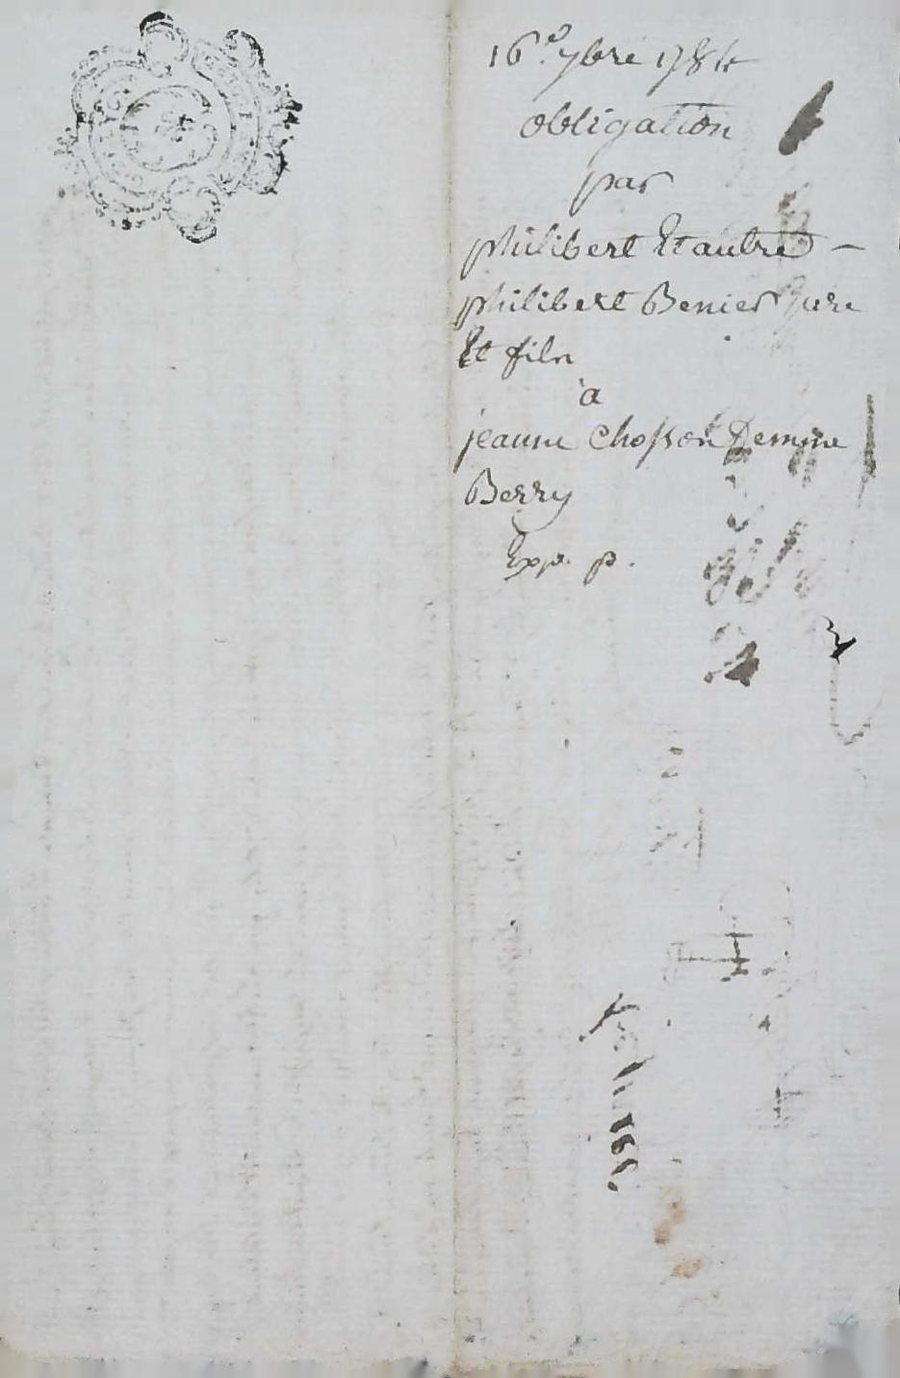 16.e 7bre 1784
obligation
par
philibert Et autre –
philibert Benier pere
Et fils
à
jeanne Chosson Demme
Berry
Exp. p.